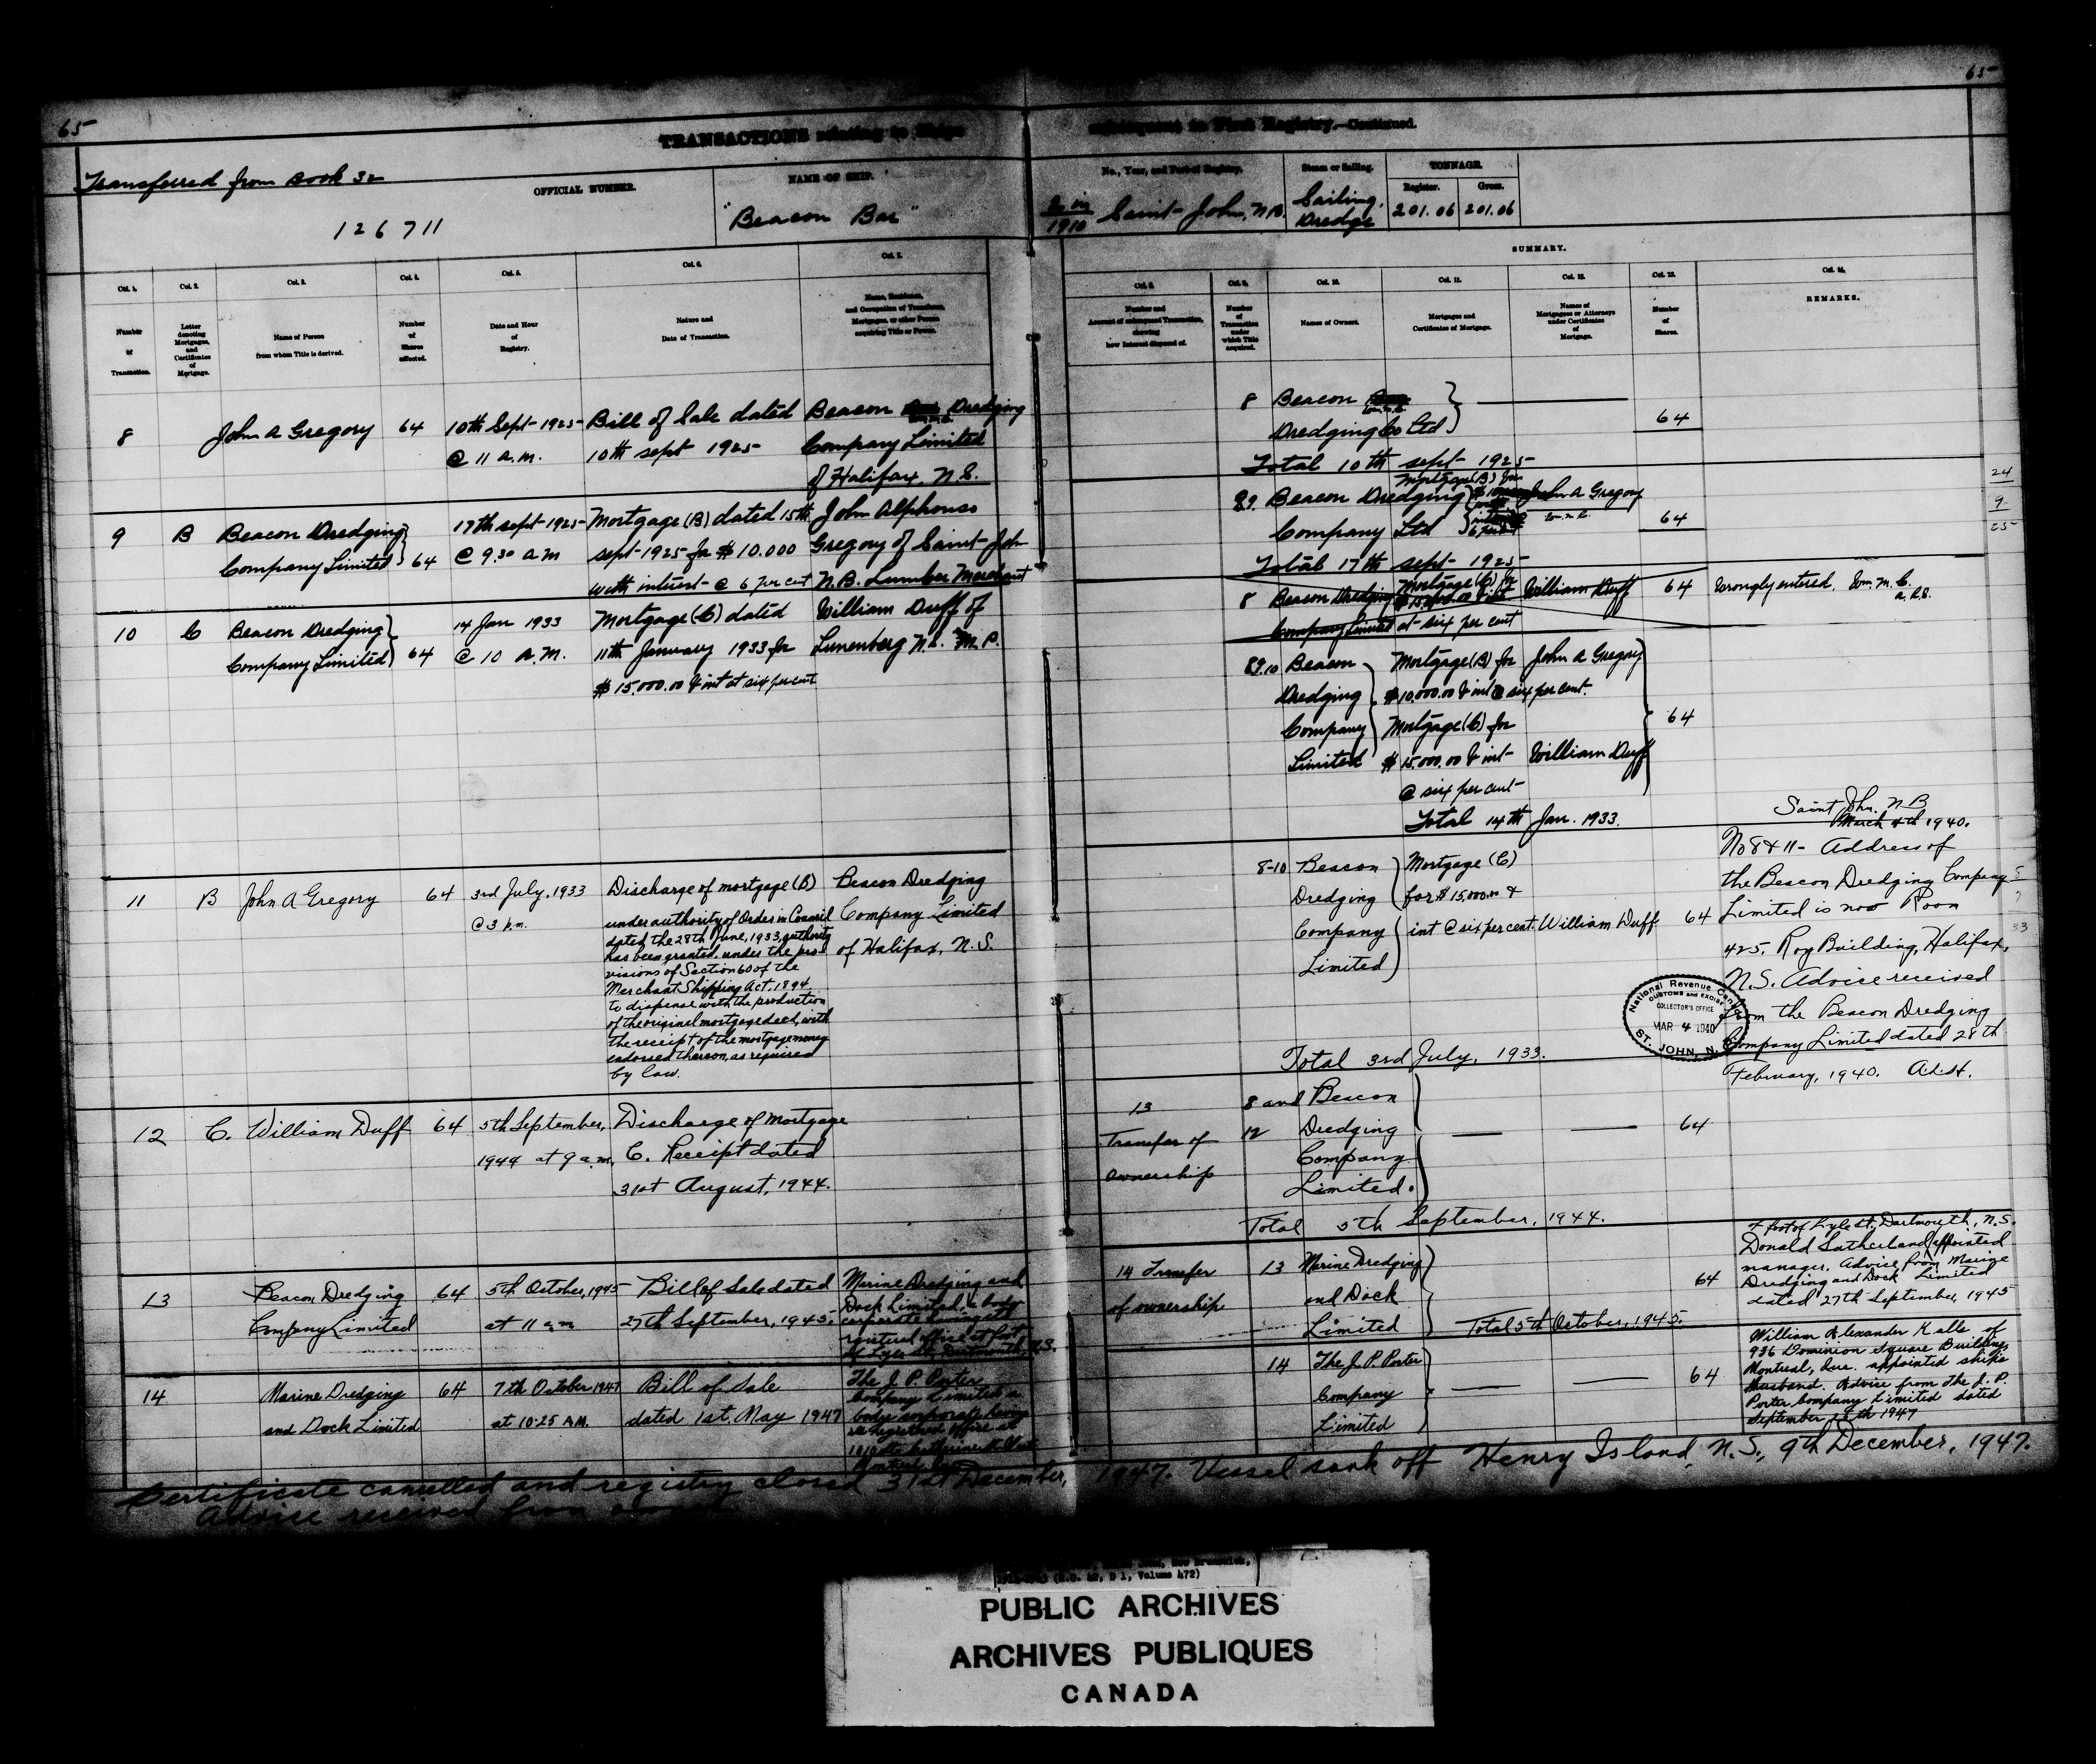 65
65
TRANSACTIONS relating to Ships
subsequent to First Registry.—Continued.
Transferred from Book 32
OFFICIAL NUMBER.
126711
NAME OF SHIP.
"Beacon Bar"
No., Year, and Port of Registry.
1910 Saint John, N.B.
Steam or Sailing.
Sailing.
Dredge
TONNAGE.
Register.
Gross.
201.06
201.06
SUMMARY.
Col. 1.
Number
of
Transaction.
Col. 2.
Letter
denoting
Mortgages,
and
Certificates
of
Mortgage.
Col. 3.
Name of Person
from whom Title is derived.
Col. 4.
Number
of
Shares
affected.
Col. 5.
Date and Hour
of
Registry.
Col. 6.
Nature and
Date of Transaction.
Col. 7.
Name, Residence,
and Occupation of Transferee,
Mortgagee, or other Person
acquiring Title or Power.
Col. 8.
Number and
Account of subsequent Transaction,
showing
how Interest disposed of.
Col. 9.
Number
of
Transaction
under
which Title
acquired.
Col. 10.
Names of Owners.
Col. 11.
Mortgages and
Certificates of Mortgage.
Col. 12.
Names of
Mortgagees or Attorneys
under Certificates
of
Mortgage.
Col. 13.
Number
of
Shares.
Col. 14.
REMARKS.
8
John A Gregory
64
10th Sept 1925
@ 11 a.m.
Bill of Sale dated
10th sept 1925
Beacon Dredging
Company Limited
of Halifax. N.S.
8
Beacon
Dredging Co Ltd
64
Total 10th sept 1925
9
B
Beacon Dredging
Company Limited
64
17th sept 1925
@ 9.30 a m
Mortgage (B) dated 15th
sept 1925 for $10.000
with interest @ 6 per cent
John Alphonso
Gregory of Saint John
N.B. Lumber Merchant
89.
Beacon Dredging
Company Ltd
Mortgage (B) for
John A Gregory
64
24
9
25
Total 17th sept 1925
8
Beacon Dredging
Company Limited
Mortgage (C) for
$15,000.00 & int
at six per cent
William Duff
64
Wrongly entered. Wm. M. C.
10
C
Beacon Dredging
Company Limited
64
14 Jan 1933
@ 10 A.M.
Mortgage (C) dated
11th January 1933 for
$15.000.00 & int at six per cent
William Duff of
Lunenberg N.S. M.P.
89.10
Beacon
Dredging
Company
Limited
Mortgage (B) for
$10,000.00 & int @ six per cent.
John A Gregory
Mortgage (C) for
$15.000.00 & int
@ six per cent
William Duff
64
Total 14th Jan. 1933.
11
B
John A Gregory
64
3rd July, 1933
@ 3 p.m.
Discharge of mortgage (B)
under authority of Order in Council
dated the 28th June, 1933, authority
has been granted, under the pro-
visions of Section 60 of the
Merchant Shipping Act, 1894
to dispense with the production
of the original mortgage deed, with
the receipt of the mortgage money
endorsed thereon, as required
by law.
Beacon Dredging
Company Limited
of Halifax, N.S.
8-10
Beacon
Dredging
Company
Limited
Mortgage (C)
for $15,000.00 &
int @ six per cent.
William Duff
64
Total 3rd July, 1933.
Saint John. N B
March 4th 1940.
No 8 & 11- Address of
the Beacon Dredging Company
Limited is now Room
425. Roy Building, Halifax,
N.S. Advice received
from the Beacon Dredging
Company Limited dated 28th
February, 1940.
National Revenue Canada
CUSTOMS and EXCISE
COLLECTOR'S OFFICE
MAR 4 1940
ST. JOHN, N.B.
12
C.
William Duff
64
5th September,
1944 at 9 a.m.
Discharge of Mortgage
C. Receipt dated
31st August, 1944.
13
Transfer of
ownership
8 and
12
Beacon
Dredging
Company
Limited.
64
Total 5th September, 1944.
13
Beacon Dredging
Company Limited
64
5th October, 1945
at 11 a.m
Bill of Sale dated
27th September, 1945.
Marine Dredging and
Dock Limited, a body
corporate having its
registered office at foot
of Lyle St, Dartmouth, N.S.
14 Transfer
of ownership
13
Marine Dredging
and Dock
Limited
64
Total 5th October, 1945.
foot of Lyle St, Dartmouth, N.S.
Donald Sutherland appointed
manager. Advice from Marine
Dredging and Dock Limited
dated 27th September, 1945
14
Marine Dredging
and Dock Limited
64
7th October 1947
at 10.25 A.M.
Bill of Sale
dated 1st. May 1947
The J. P. Porter
Company Limited a
body corporate having
its registered office at
14
The J. P. Porter
Company
Limited
64
William Alexander Kalls of
936 Dominion Square Building,
Montreal, Que. appointed ships
husband. Advice from The J. P.
Porter Company Limited dated
September 1947
Certificate cancelled and registry closed 31st December, 1947. Vessel sank off Henry Island, N.S., 9th December, 1947.
Advice received from
Volume 472)
PUBLIC ARCHIVES
ARCHIVES PUBLIQUES
CANADA